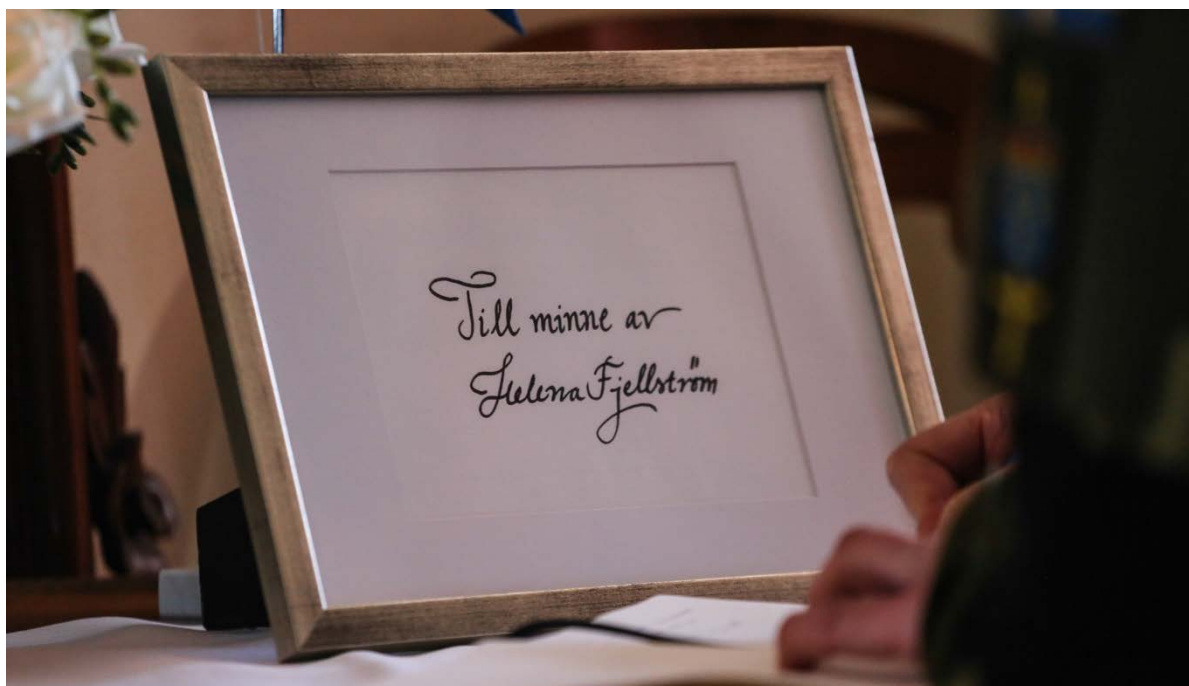 Till minne av
Helena Fjellström